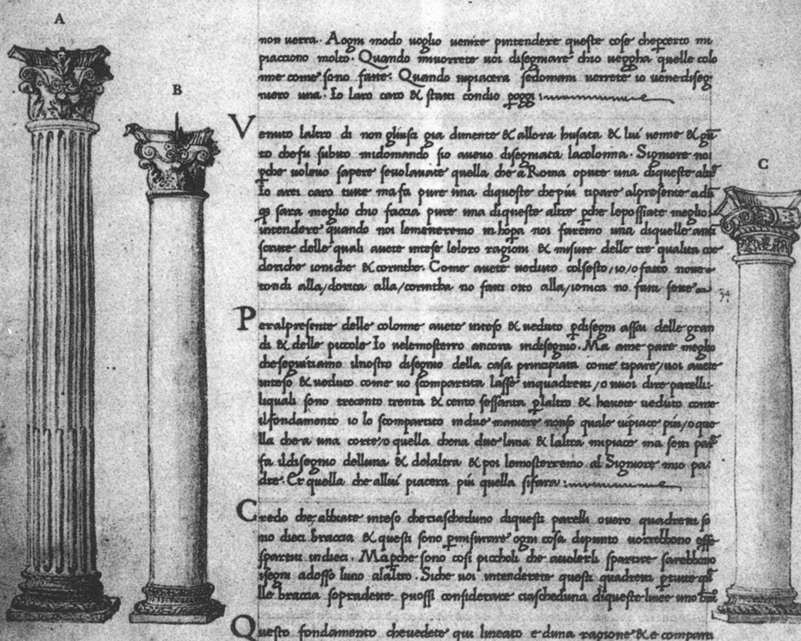 A
B
C
non verra. Aogni modo voglio venire pintendere queste cose chepcerto mi
piacciono molto. Quando mivorrete voi disegniare chio veggha quelle colo
nne come sono fatte. Quando vipiacera sedomani verrete io venediseg
niero una. Io laro caro & stati condio poggi
Venuto laltro di non gliusci gia dimente & allora husata & lui venne &
to chefu subito midomando sio avevo disegniata lacolonna. Signore no
pche volevo sapere sevolavate quella che a Roma opure una diqueste altre
Io arei caro tutte ma fa pure una diqueste chepiu tipare alpresente
sara meglio chio faccia pure una diqueste altre pche lepossiate meglio
intendere quando noi lemetteremo noi faremo una diquelle anti
scritte delle quali avete intese leloro ragioni & misure delle tre qualita coe
doriche ioniche & corinthe. Come avete veduto colsesto/io/o fatto nove
tondi alla/dorica alla/corintha no fatti otto alla/ionica no fatti sette
Peralpresente delle colonne avete inteso & veduto pdisegni assai delle gran
di & delle piccole Io velemosterro ancora indisegno. Ma ame pare meglio
cheseguitiamo ilnostro disegno della casa principiata come tipare/voi avete
inteso & veduto come vo scompartita lasse inquadretti/o vuoi dire parelli
liquali sono trecento trenta & cento sessanta plaltro & havete veduto come
ilfondamento io lo scompartito indue maniere nonso quale vipiace piu/o que
lla che a una corte/o quella chena due luna & laltra mipiace ma se ti pare
fa ildisegno delluna & delaltra & poi lemosterremo al Signore mio pa
dre. Et quella che allui piacera piu quella sifara
Credo che abbiate inteso checiascheduno diquesti parelli overo quadretti so
no dieci braccia & questi sono pmisurare ogni cosa dipunto vorrebbono esse
spartiti indieci. Mapche sono cosi piccholi che avolerli spartire sarebbono
isegni adosso luno alaltro. Siche voi intenderete questi quadretti
lle braccia sopradette puossi considerare ciascheduna diqueste linee uno
Questo fondamento chevedete qui lineato e duna ragione & e compartito